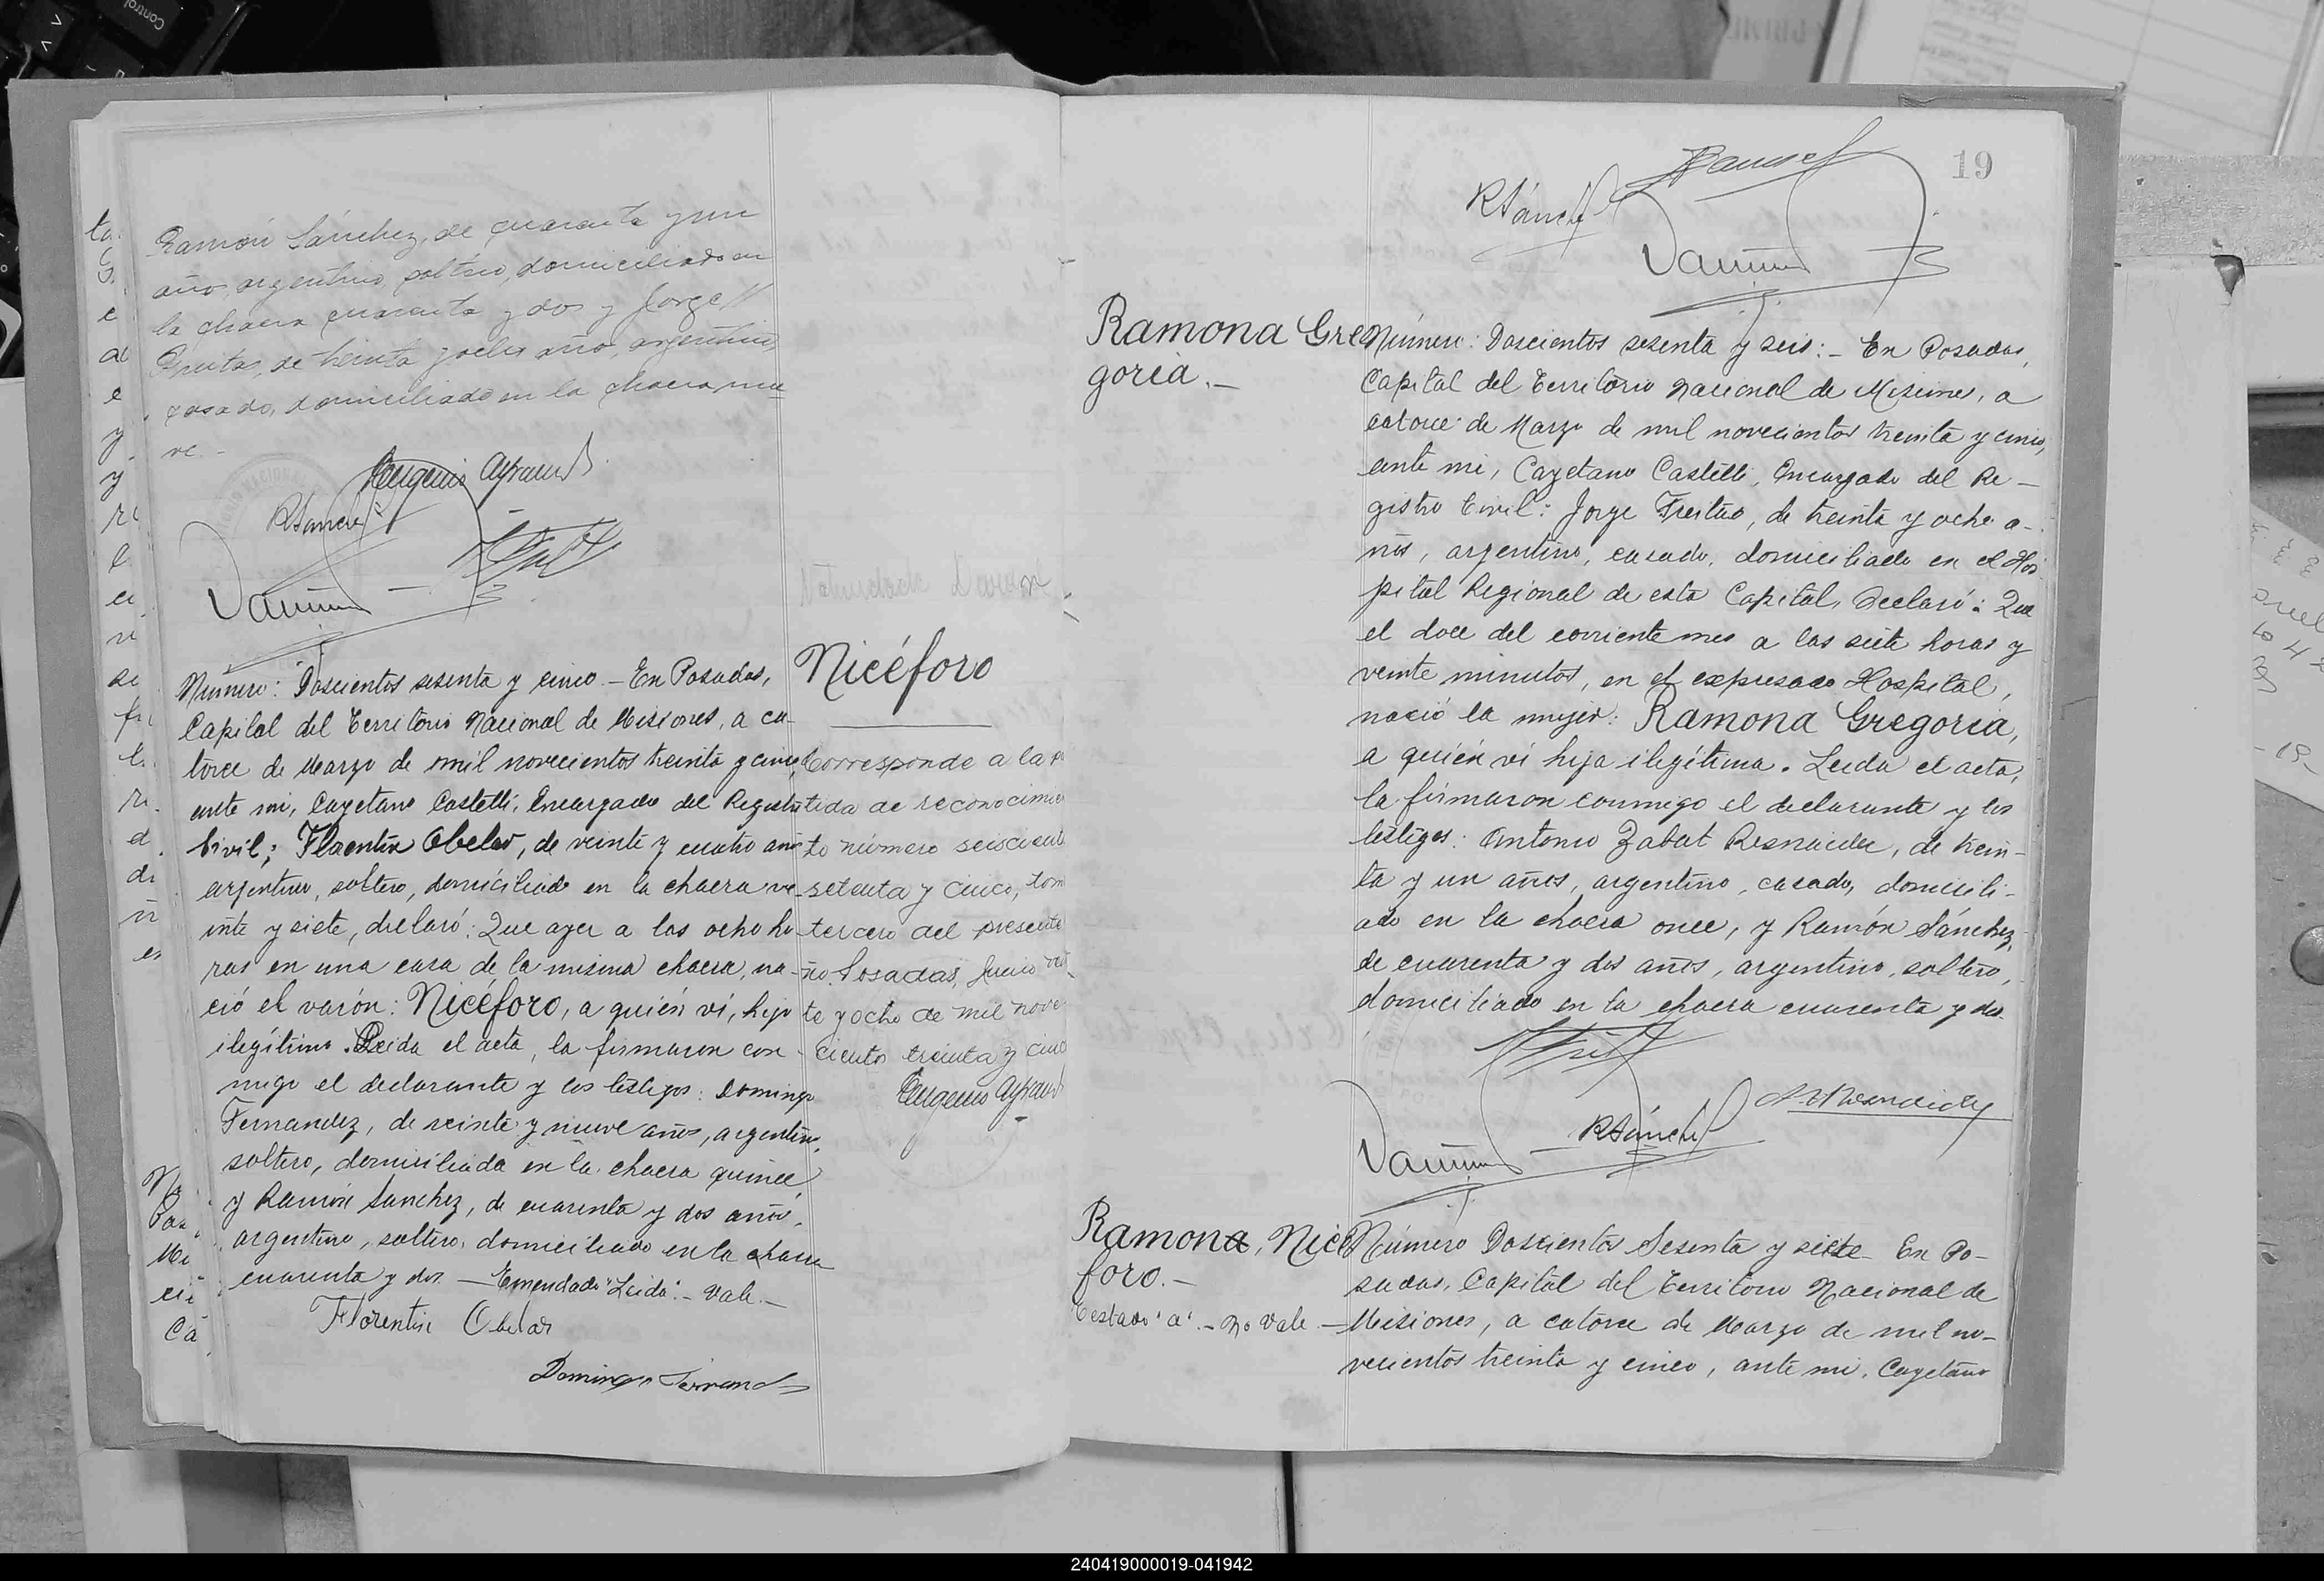 Ramón Sánchez, de cuarenta y un
año, argentino, soltero, domiciliado en
la chacra cuarenta y dos y Jorge
de treinta y ocho año, argentino,
casado, domiciliado en la chacra nue
ve.-
Eugenio
RSánchez
Número: Doscientos sesenta y cinco.- En Posadas,
Capital del Territorio Nacional de Misiones, a ca-
torce de Marzo de mil novecientos treinta y cinco,
ante mi, Cayetano Castelli, Encargado del Registro
Civil; Florentin Obelar, de veinte y cuatro años
argentino, soltero, domiciliado en la chacra ve-
inte y siete, declaró: Que ayer a las ocho ho-
ras en una casa de la misma chacra, na-
ció el varón: Nicéforo, a quién ví, hijo
ilegítimo. Leida el acta, la firmaron con-
migo el declarante y los testigos: Domingo
Fernandez, de veinte y nueve años, argentino,
soltero, domiciliado en la chacra quince,
y Ramón Sanchez, de cuarenta y dos años,
argentino, soltero, domiciliado en la chacra
cuarenta y dos. - Emendado "Leida".- Vale.-
Florentin Obelar
Domingo
Nicéforo
Corresponde a la
tida de reconocimien
to número seiscient
setenta y cinco, tom
tercero del presente
ño. Posadas, Junio vein
te y ocho de mil nove-
cientos treinta y cinco
Eugenio
19
RSánchez
Ramona Gre
goria.-
Número: Doscientos sesenta y seis:- En Posadas,
Capital del Territorio Nacional de Misiones, a
catorce de Marzo de mil novecientos treinta y cinco,
ante mi, Cayetano Castelli, Encargado del Re-
gistro Civil: Jorge Freitas, de treinta y ocho a-
ños, argentino, casado, domiciliado en el Hos-
pital Regional de esta Capital, Declaró: Que
el doce del corriente mes a las siete horas y
veinte minutos, en el expresado Hospital,
nació la mujer: Ramona Gregoria,
a quién ví hija ilegítima. Leida el acta,
la firmaron conmigo el declarante y los
testigos: Antonio Zabat Resnaider, de trein-
ta y un años, argentino, casado, domicili-
ado en la chacra once, y Ramón Sánchez,
de cuarenta y dos años, argentino, soltero,
domiciliado en la chacra cuarenta y dos.
RSánchez
Ramona, Nicé
foro.-
Testado "a".- No Vale.-
Número Doscientos Sesenta y siete- En Po-
sadas, Capital del Territorio Nacional de
Misiones, a catorce de Marzo de mil no-
vecientos treinta y cinco, ante mi, Cayetano
240419000019-041942